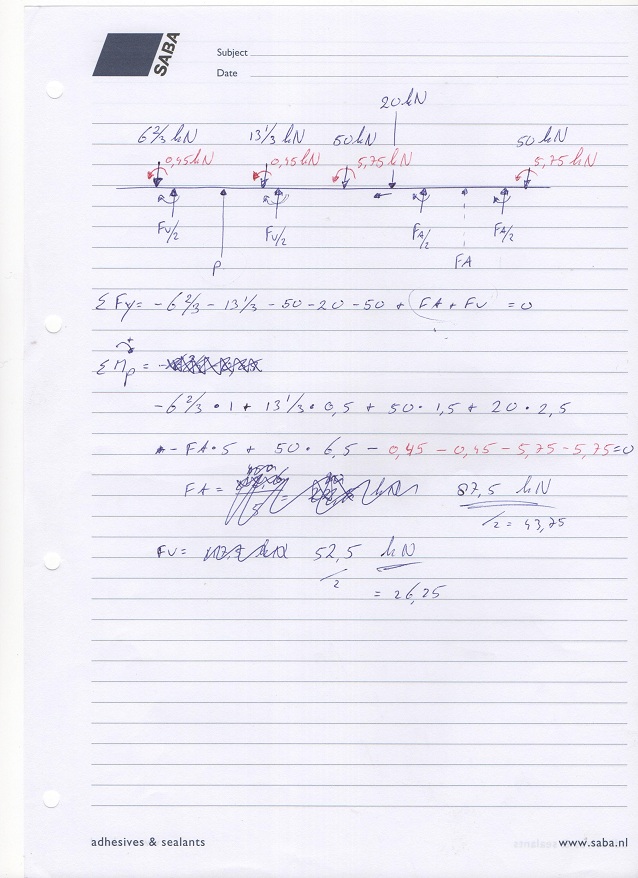 SABA
Subject
Date
20 kN
6 2/3 kN 13 1/3 kN 50 kN 50 kN
0,45 kN 0,45 kN 5,75 kN 5,75 kN
Fv/2 Fv/2 FA/2 FA/2
P FA
ΣFy = -6 2/3 - 13 1/3 - 50 - 20 - 50 + (FA + Fv = 0
ΣMp = -
-6 2/3 · 1 + 13 1/3 · 0,5 + 50 · 1,5 + 20 · 2,5
- FA · 5 + 50 · 6,5 - 0,45 - 0,45 - 5,75 - 5,75 = 0
FA = kN 87,5 kN
/2 = 43,75
Fv = 52,5 kN
/2 = 26,25
adhesives & sealants www.saba.nl